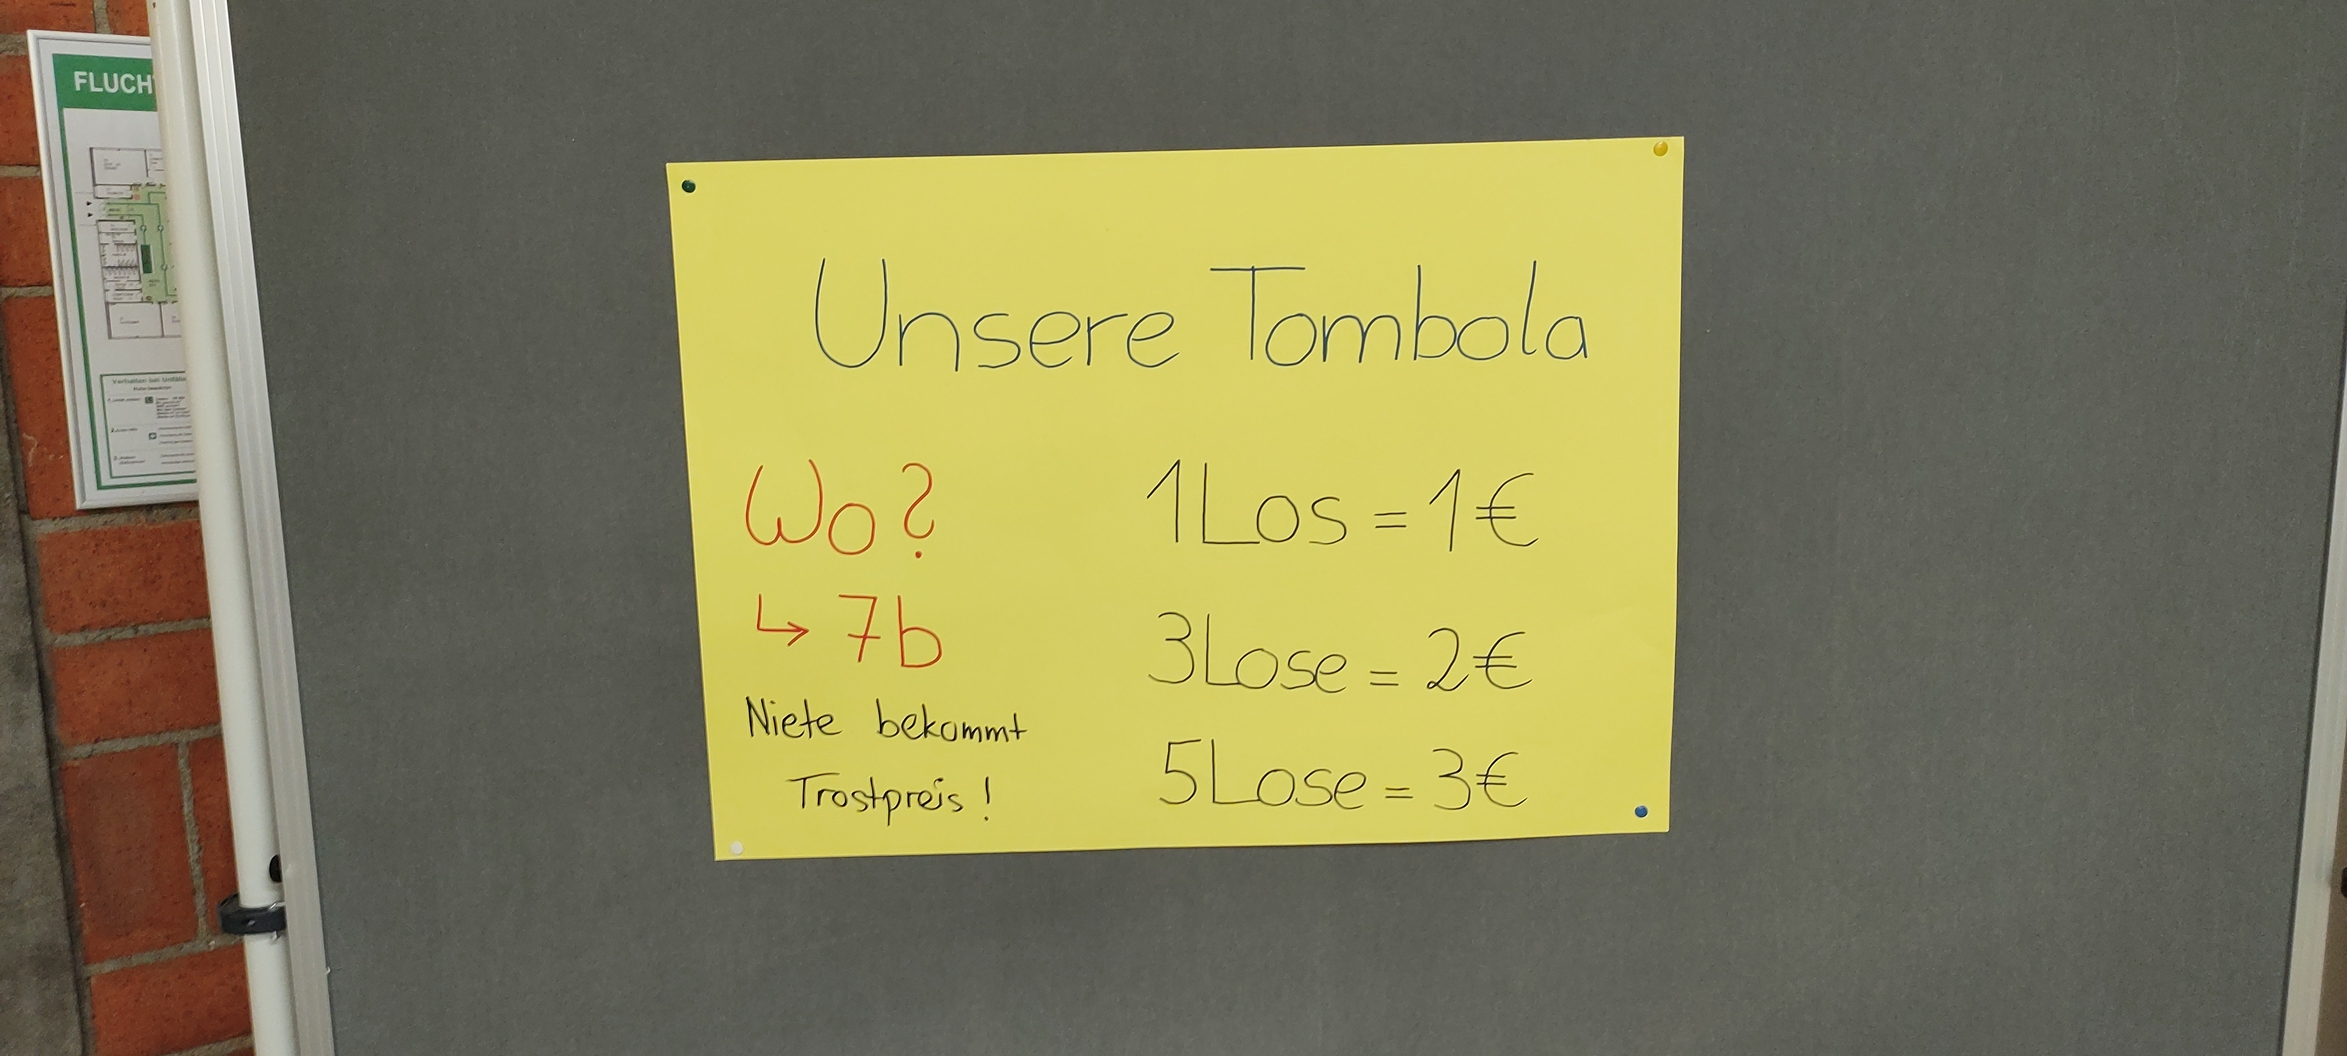 FLUCH
Verhalten bei Unfälle
Unsere Tombola
Wo?
↳ 7b
Niete bekommt
Trostpreis!
1Los = 1€
3Lose = 2€
5Lose = 3€